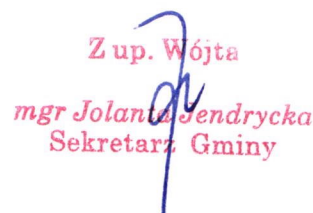 Z up. Wójta
mgr Jolanta Jendrycka
Sekretarz Gminy